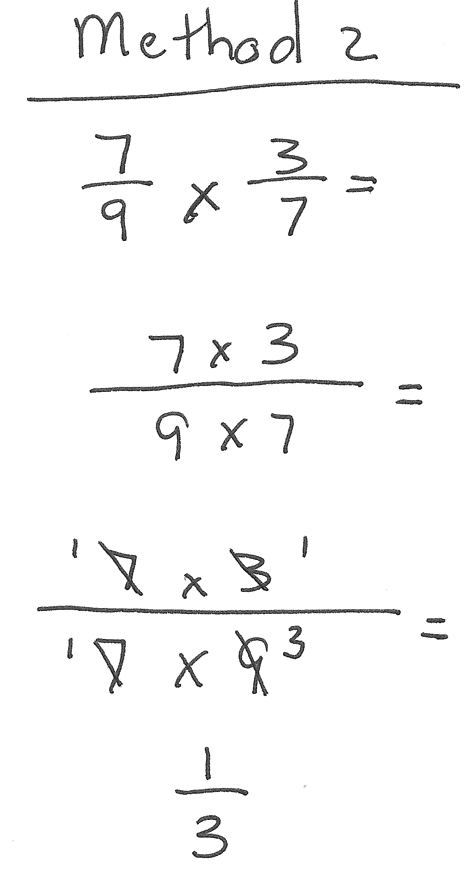 Method 2
7/9 x 3/7 =
7 x 3 / 9 x 7 =
1 7 x 3 1 / 1 7 x 9 3 =
1/3